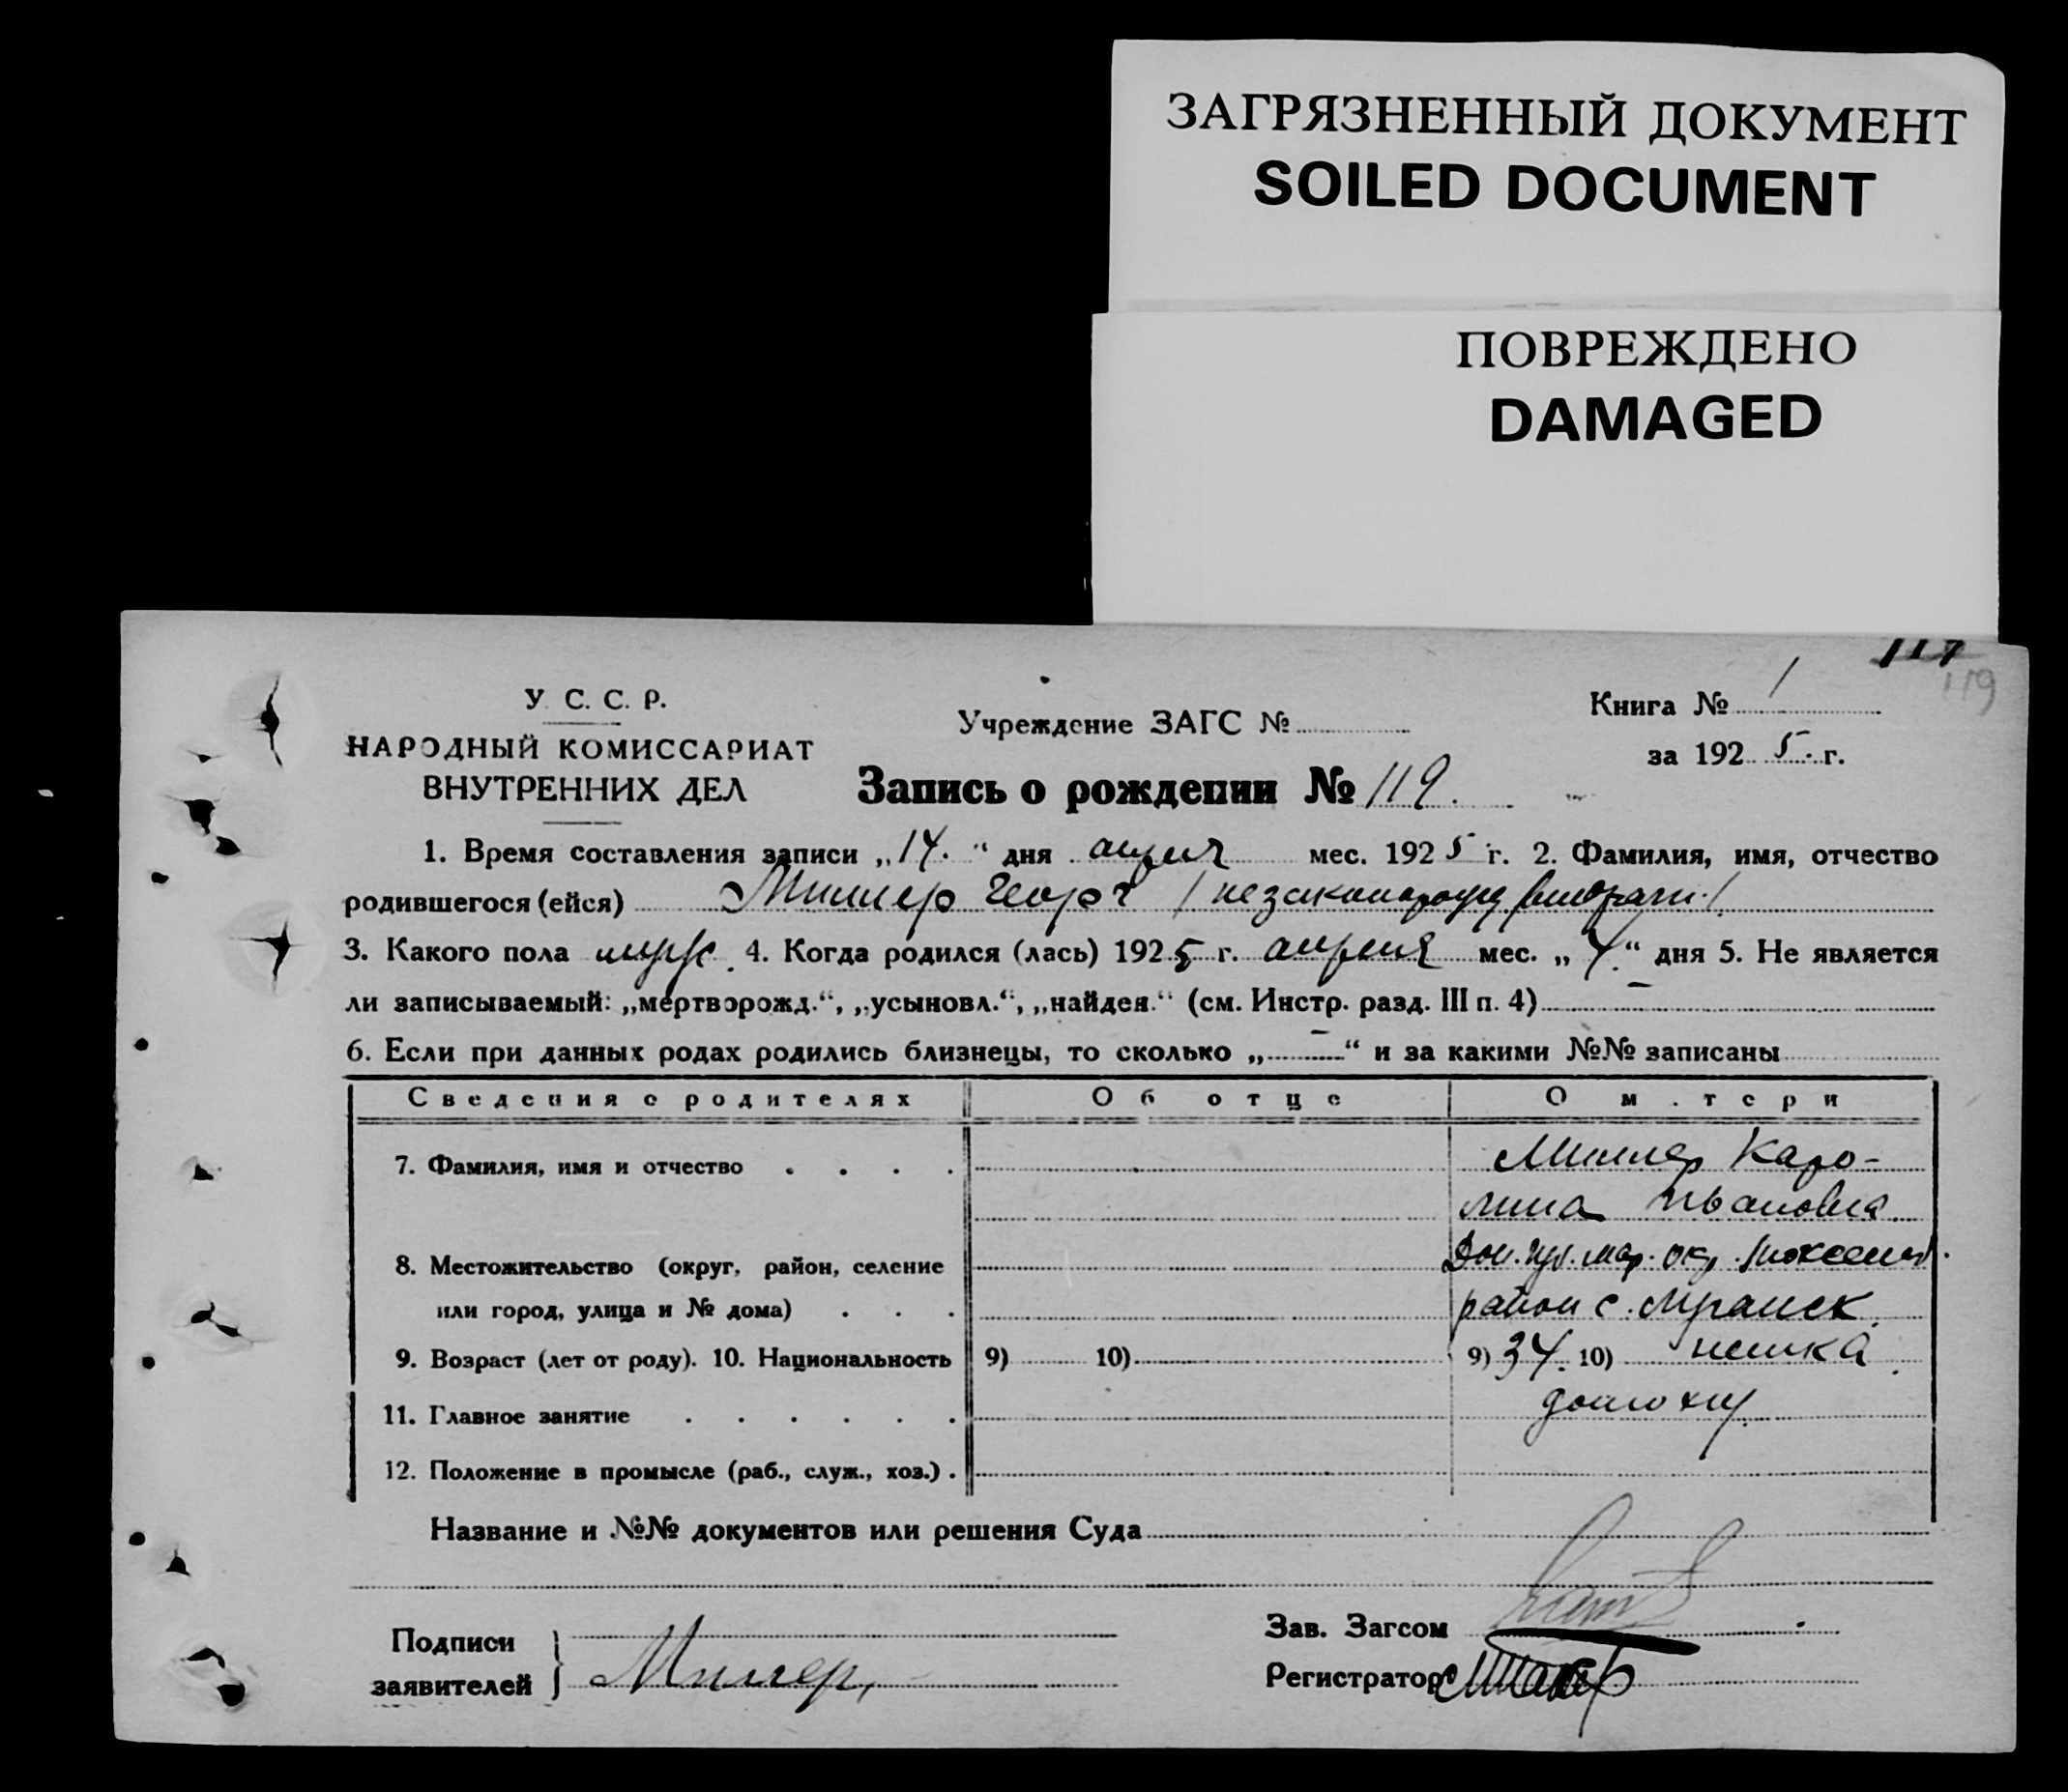 ЗАГРЯЗНЕННЫЙ ДОКУМЕНТ
SOILED DOCUMENT
ПОВРЕЖДЕНО
DAMAGED
117
119
У. С. С. Р.
НАРОДНЫЙ КОМИССАРИАТ
ВНУТРЕННИХ ДЕЛ
Учреждение ЗАГС №
Книга № 1
за 1925 г.
Запись о рождении № 119.
1. Время составления записи „14.“ дня апреля мес. 1925 г. 2. Фамилия, имя, отчество
родившегося (ейся) Миллер Георг
3. Какого пола муж. 4. Когда родился (лась) 1925 г. апреля мес. „4.“ дня 5. Не является
ли записываемый: „мертворожд.“, „усыновл.“, „найден.“ (см. Инстр. разд. III п. 4) —
6. Если при данных родах родились близнецы, то сколько „—“ и за какими №№ записаны
Сведения о родителях Об отце О матери
7. Фамилия, имя и отчество Миллер Каро-
лина Ивановна
8. Местожительство (округ, район, селение Дон. губ. мар. окр.
или город, улица и № дома) район с.
9. Возраст (лет от роду). 10. Национальность 9) 10) 9) 34. 10) немка
11. Главное занятие домохоз.
12. Положение в промысле (раб., служ., хоз.)
Название и №№ документов или решения Суда
Подписи
заявителей } Миллер,
Зав. Загсом
Регистратор